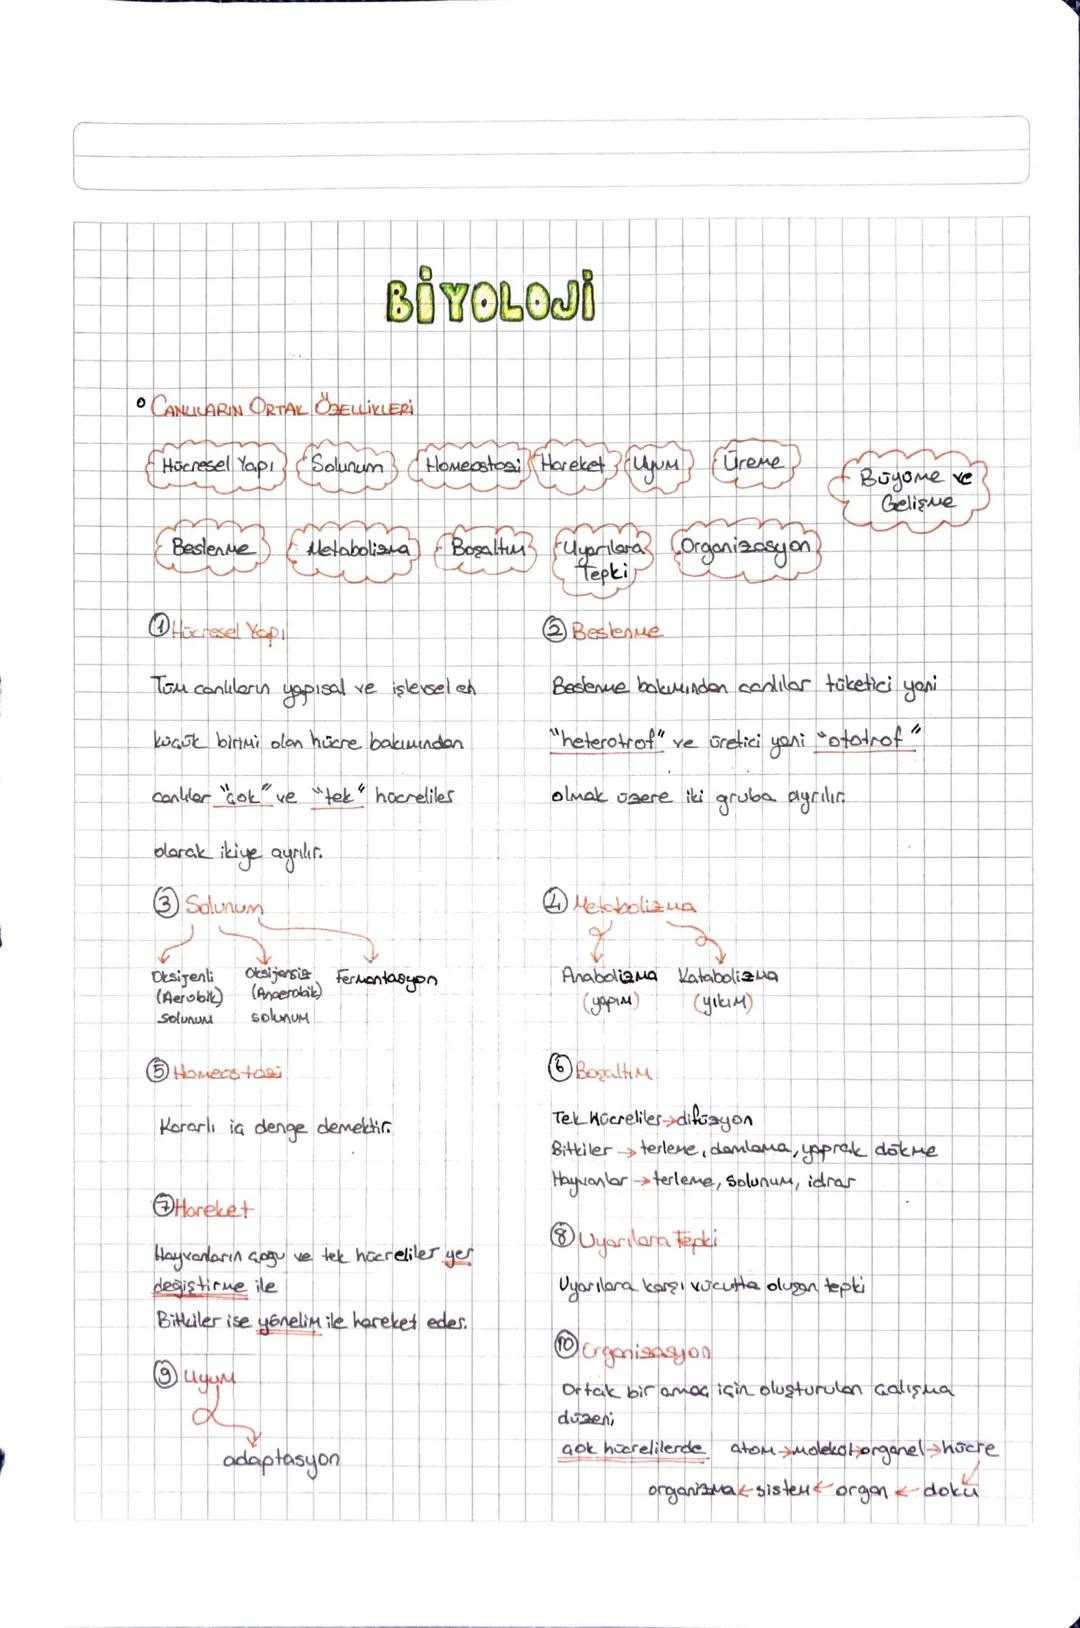 BİYOLOJİ
CANLILARIN ORTAK ÖZELLİKLERİ
Hücresel Yapı
Solunum
Homeostasi
Hareket
Uyum
Üreme
Büyüme ve
Gelişme
Beslenme
Metabolizma
Boşaltım
Uyarılara
Tepki
Organizasyon
① Hücresel Yapı
Tüm canlıların yapısal ve işlevsel en
küçük birimi olan hücre bakımından
canlılar "çok" ve "tek" hücreliler
olarak ikiye ayrılır.
② Beslenme
Beslenme bakımından canlılar tüketici yani
"heterotrof" ve üretici yani "ototrof"
olmak üzere iki gruba ayrılır.
③ Solunum
Oksijenli
(Aerobik)
solunum
Oksijensiz
(Anaerobik)
solunum
Fermantasyon
④ Metabolizma
Anabolizma
(yapım)
Katabolizma
(yıkım)
⑤ Homeostasi
Kararlı iç denge demektir.
⑥ Boşaltım
Tek Hücreliler → difüzyon
Bitkiler → terleme, damlama, yaprak dökme
Hayvanlar → terleme, solunum, idrar
⑦ Hareket
Hayvanların çoğu ve tek hücreliler yer
değiştirme ile
Bitkiler ise yönelim ile hareket eder.
⑧ Uyarılara Tepki
Uyarılara karşı vücutta oluşan tepki
⑨ Uyum
adaptasyon
⑩ Organizasyon
Ortak bir amaç için oluşturulan çalışma
düzeni
çok hücrelilerde atom → molekül → organel → hücre
organizma ← sistem ← organ ← doku